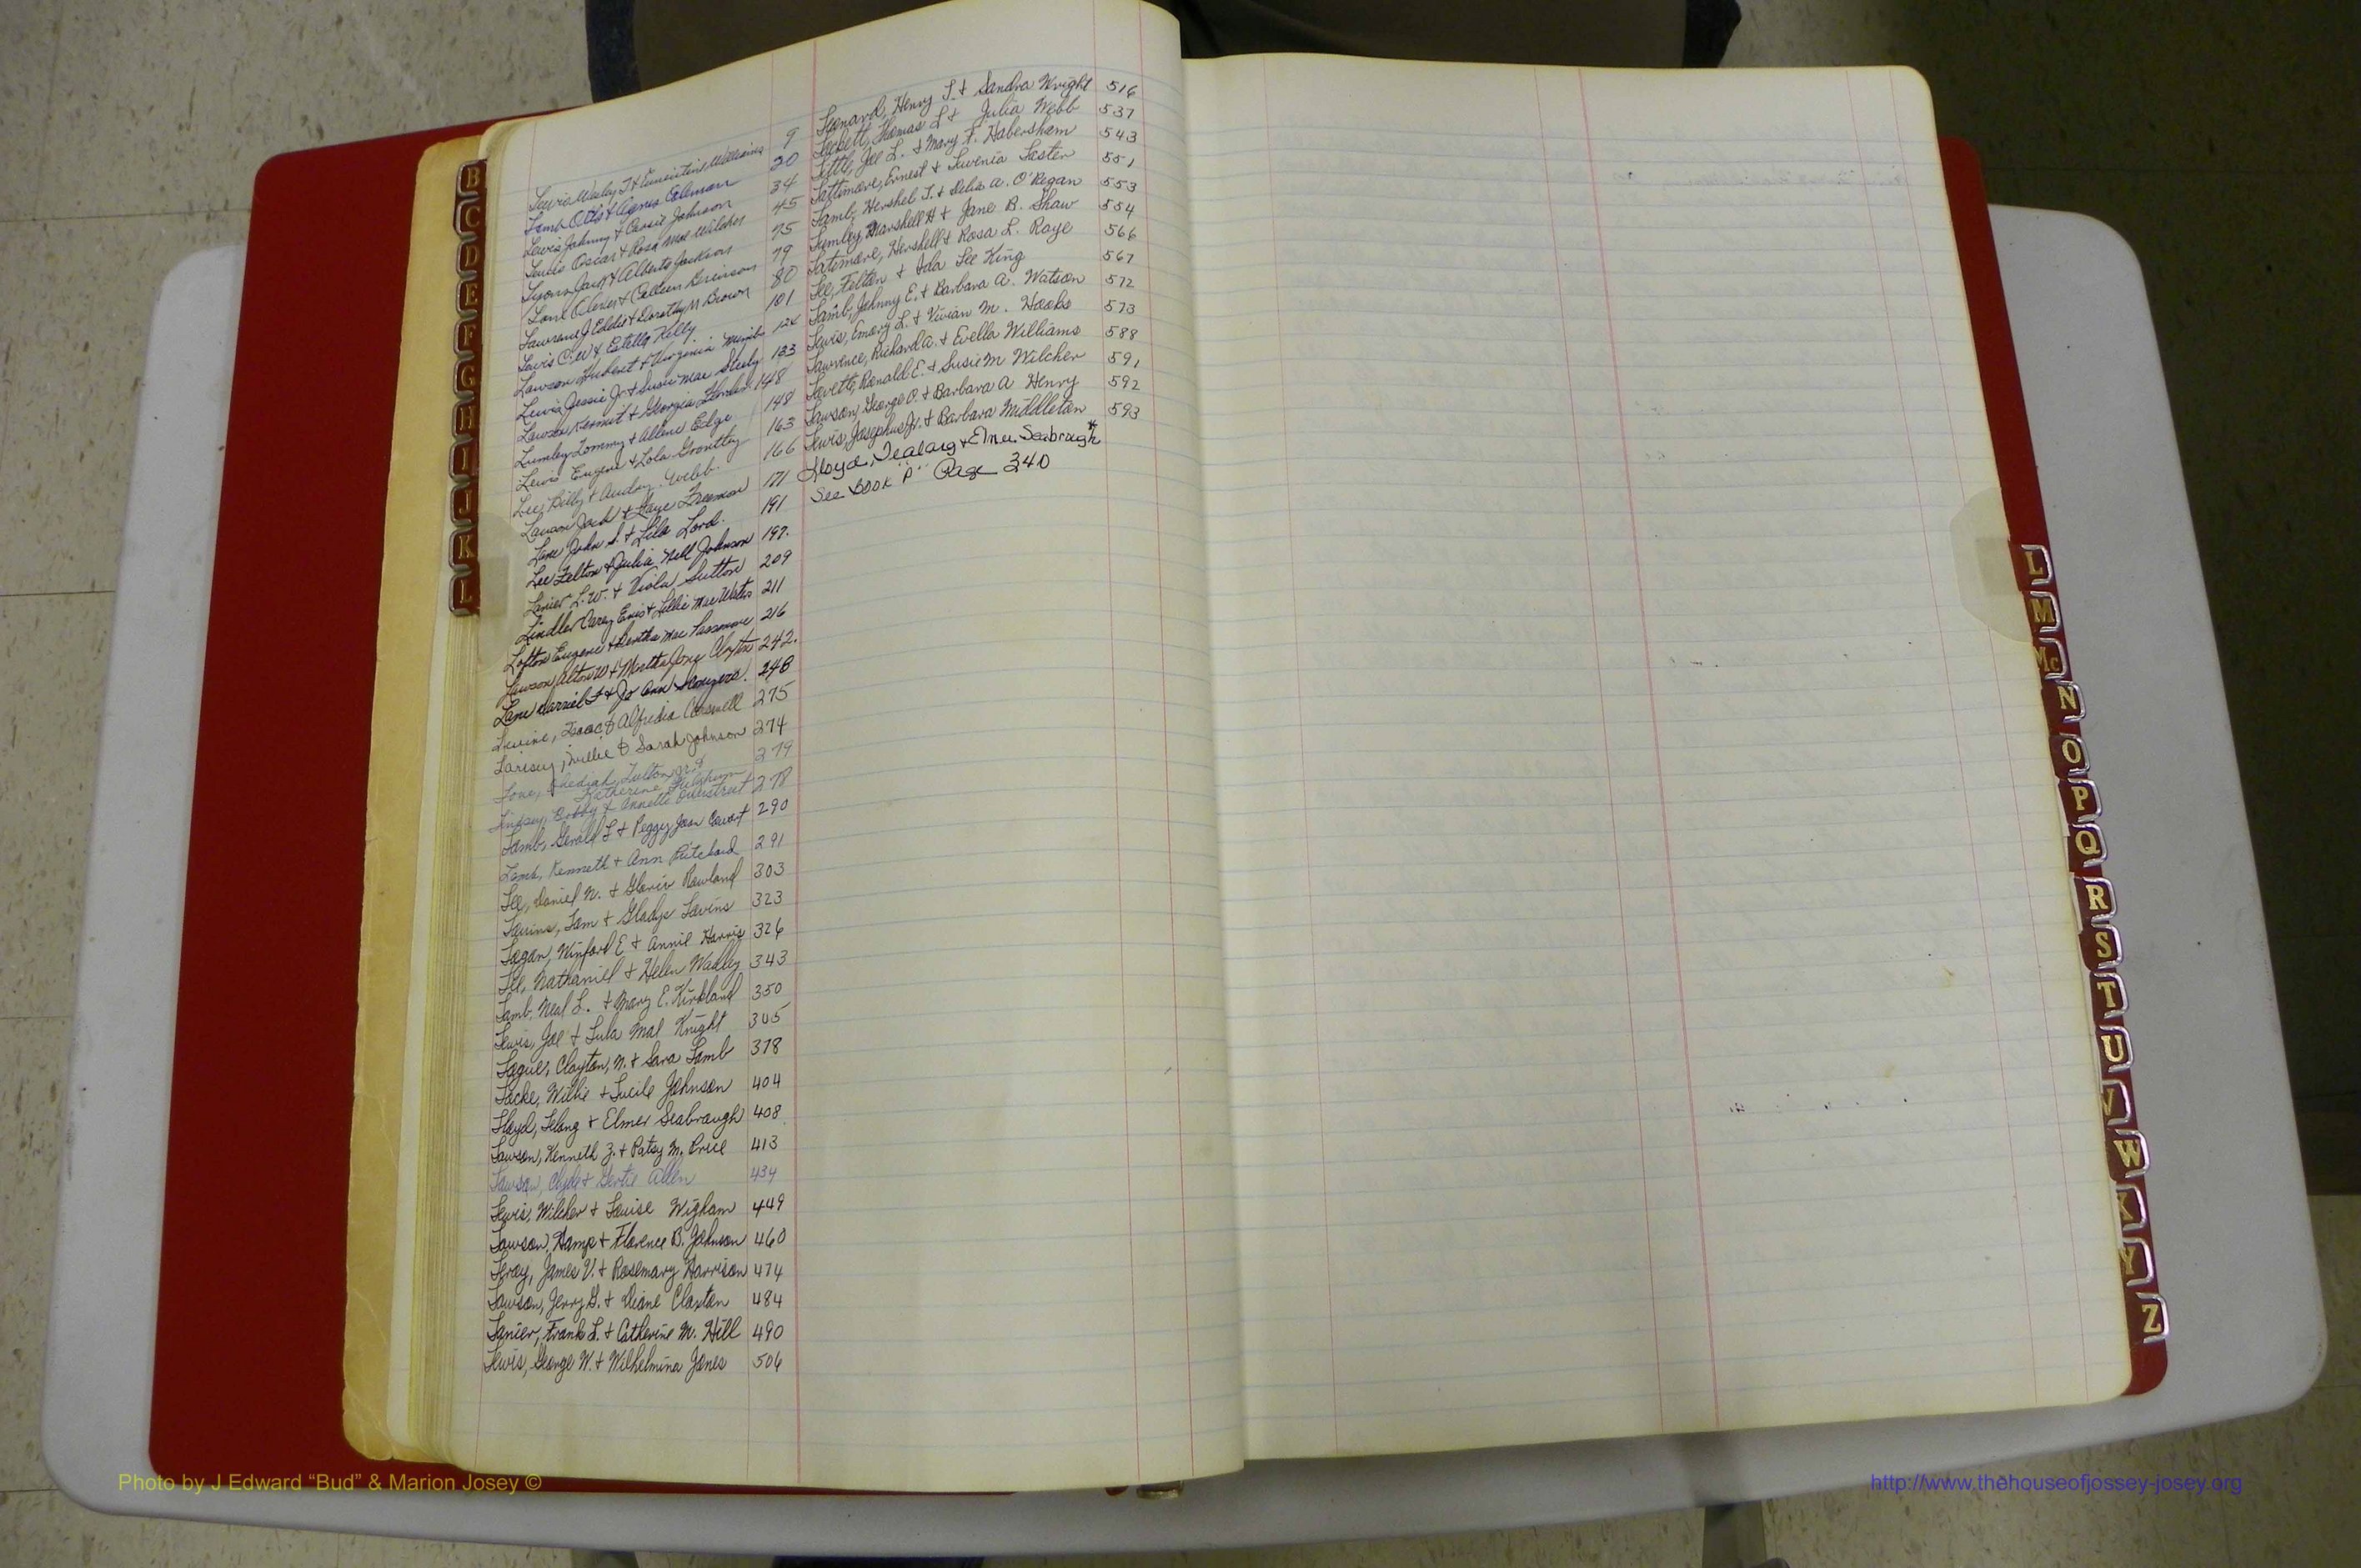 Lewis Wesley J & Earnestine Williams 9
Lamb Otis & Agnes Coleman 20
Lewis Johnny & Carrie Johnson 34
Lewis Oscar & Rosa Mae Wilcher 45
Lyons Jack & Alberta Jackson 75
Lane Oliver & Colleen Brinson 79
Lawrence J. Eddie & Dorothy M Brown 80
Lewis C.W & Estella Kelly 101
Lawson Hubert & Virginia 124
Lewis Jessie Jr & Susie Mae 133
Lawson Kermit & Georgia 148
Lumley Tommy & Allene Edge 148
Lewis Eugene & Lola Grantley 163
Lee, Billy & Audry Webb. 166
Lawson Jack & Faye Freeman 171
Lane John S. & Lila Lord. 191
Lee Felton & Julia Nell Johnson 197.
Lanier L.W. & Viola Sutton 209
Lindler Carey Enis & Lillie Mae Waters 211
Lofton Eugene & Bertha Mae 216
Lawson, Alton W & Martha Jane Claxton 242.
Lane Darriel F & Jo Ann 248
Levine, Isaac & Alfredia Carswell 275
Larisey, Willie & Sarah Johnson 274
Love, Fulton Jr. & 279
Katherine Fulghum
Lindsey, Bobby & Annette Overstreet 278
Lamb, Gerald L & Peggy Jean Cowart 290
Lamb, Kenneth & Ann Pritchard 291
Lee, Daniel N. & Gloria Rowland 303
Lavins, Sam & Gladys Lavins 323
Logan, Winford E & Annie Harris 326
Lee, Nathaniel & Helen Wadley 343
Lamb, Neal L. & Mary E. Kirkland 350
Lewis, Joe & Lula Mae Knight 305
Clayton, N. & Sara Lamb 378
Locke, Willie & Lucile Johnson 404
Lloyd, & Elmer Seabraugh 408
Lawson, Kenneth Z. & Patsy M. Price 413
Lawson, Clyde & Gertie Allen 434
Lewis, Wilcher & Louise Wigham 449
Lawson, Hamp & Florence B. Johnson 460
Leroy, James V. & Rosemary Harrison 474
Lawson, Jerry G. & Diane Claxton 484
Lanier, Frank L. & Catherine M. Hill 490
Lewis, George W. & Wilhelmina Jones 506
Leonard, Henry L. & Sandra Wright 516
Lockett, Thomas L & Julia Webb 537
Little, Joe L. & Mary F. Habersham 543
Lattimore, Ernest & Luvenia Lester 551
Lamb, Hershel J. & Delia A. O'Regan 553
Lumley, Marshell H & Jane B. Shaw 554
Latimore, Hershell & Rosa L. Raye 566
Lee, Felton & Ida Lee King 567
Lamb, Johnny E. & Barbara A. Watson 572
Lewis, Emory L. & Vivian M. Hooks 573
Lawrence, Richard A. & Evella Williams 588
Lovett, Ronald E. & Susie M Wilcher 591
Lawson, George O. & Barbara A Henry 592
Lewis, Josephus Jr. & Barbara Middleton 593
Lloyd, Tealang & Elmer Seabraugh *
See Book "P" Page 340
B
C
D
E
F
G
H
I
J
K
L
L
M
Mc
N
O
P
Q
R
S
T
U
V
W
X
Y
Z
Photo by J Edward “Bud” & Marion Josey ©
http://www.thehouseofjossey-josey.org